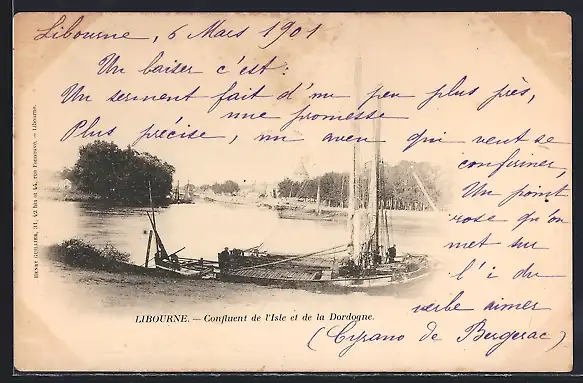 Libourne, 6 Mars 1901
Un baiser c'est:
Un serment fait d'un peu plus près,
une promesse
Plus précise, un aveu qui veut se
confirmer,
Un point
rose qu'on
met sur
l'i du
verbe aimer
(Cyrano de Bergerac)
LIBOURNE. — Confluent de l'Isle et de la Dordogne.